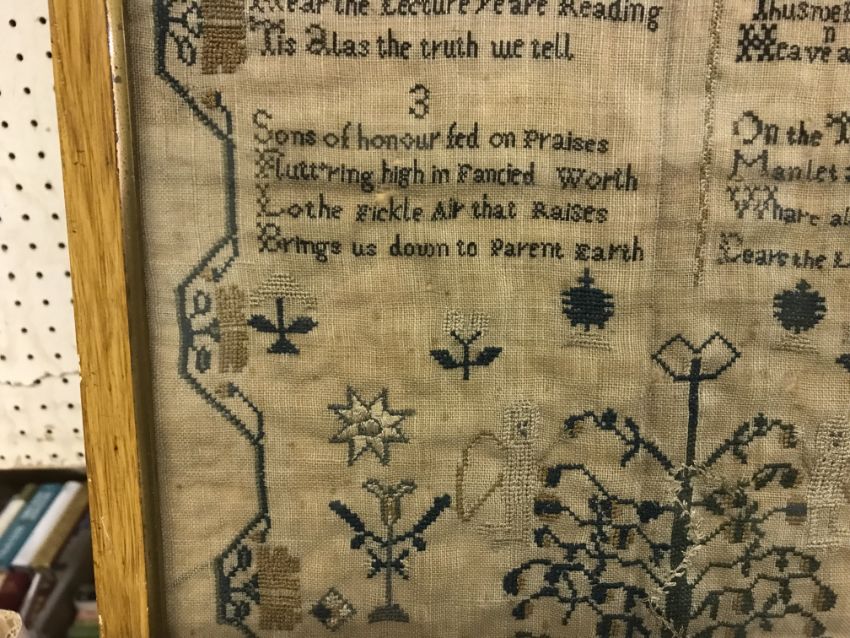 Hear the Lecture ye are Reading
Tis Alas the truth we tell
3
Sons of honour fed on Praises
Flutt'ring high in Fancied Worth
Lo the Fickle Air that Raises
Brings us down to Parent Earth
n
Heave
On the
Man let
Whare
the